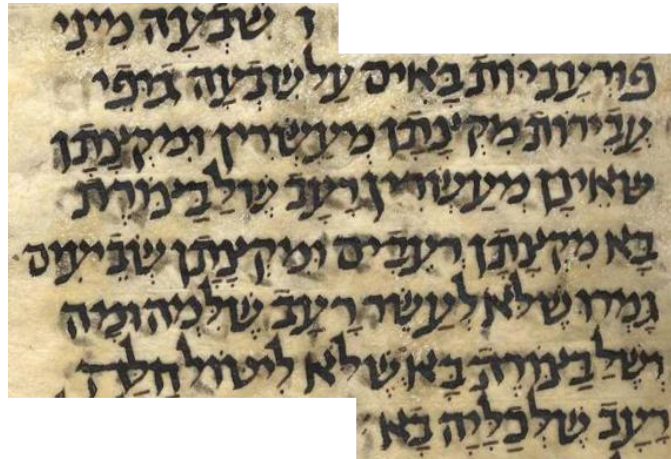 ז שבעה מיני
פורעניות באים על שבעה גופי
עבירות מקצתן מעשרין ומקצתן
שאינן מעשרין רעב שלבצורת
בא מקצתן רעבים ומקצתן שביעים
גמרו שלא לעשר רעב שלמהומה
ושלבצורת בא שלא ליטול חלה
רעב שלכלייה בא